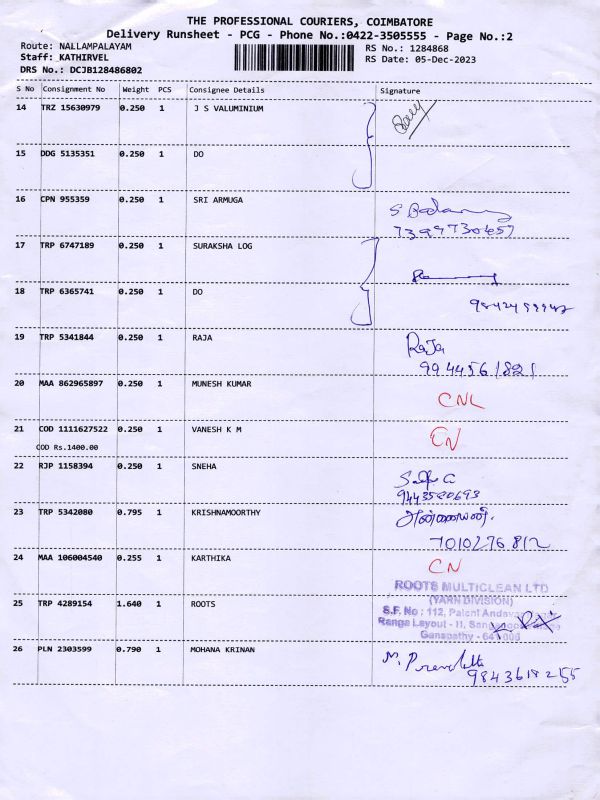 THE PROFESSIONAL COURIERS, COIMBATORE
Delivery Runsheet - PCG - Phone No.:0422-3505555 - Page No.:2
Route: NALLAMPALAYAM
Staff: KATHIRVEL
DRS No.: DCJB128486802
RS No.: 1284868
RS Date: 05-Dec-2023
S No Consignment No Weight PCS Consignee Details Signature
14 TRZ 15630979 0.250 1 J S VALUMINIUM
15 DDG 5135351 0.250 1 DO
16 CPN 955359 0.250 1 SRI ARMUGA
17 TRP 6747189 0.250 1 SURAKSHA LOG
18 TRP 6365741 0.250 1 DO
19 TRP 5341844 0.250 1 RAJA RaJa
9944561821
20 MAA 862965897 0.250 1 MUNESH KUMAR CNL
21 COD 1111627522 0.250 1 VANESH K M CN
COD Rs.1400.00
22 RJP 1158394 0.250 1 SNEHA
23 TRP 5342080 0.795 1 KRISHNAMOORTHY
7010276812
24 MAA 106004540 0.255 1 KARTHIKA CN
ROOTS MULTICLEAN LTD
(YARN DIVISION)
25 TRP 4289154 1.640 1 ROOTS S.F. No : 112, Palani
Ranga Layout - II,
Ganapathy - 641006
26 PLN 2303599 0.790 1 MOHANA KRINAN
9843618255